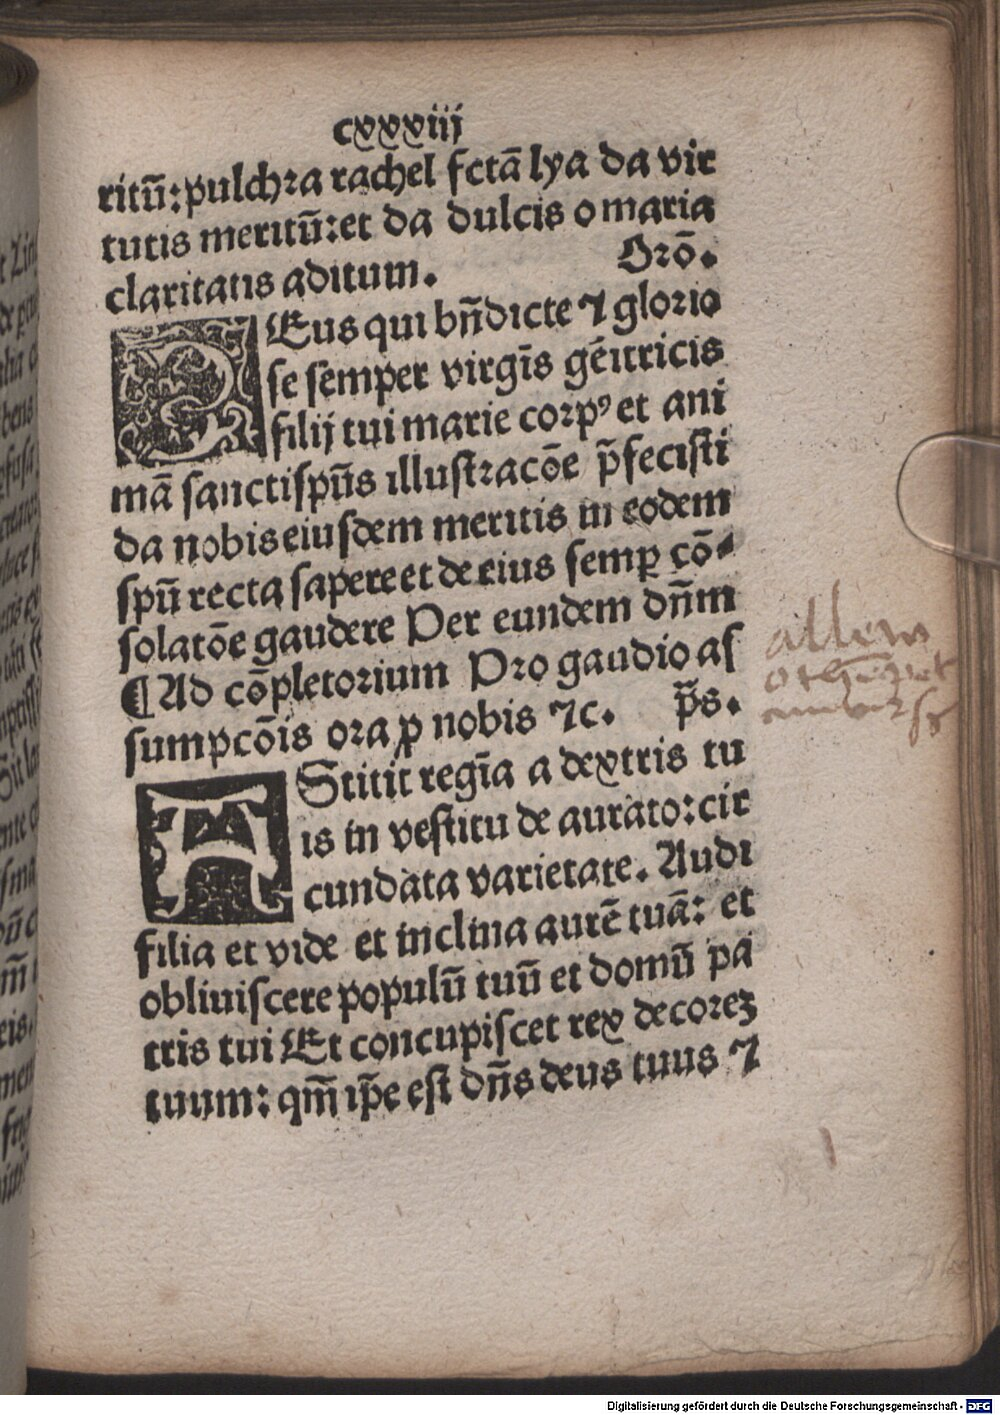 cxxxiij
ritū: pulchra rachel fctā lya da vir
tutis meritū: et da dulcis o maria
claritatis aditum. Orō.
DEus qui bn̄dicte ⁊ glorio
se semper virgīs gēitricis
filij tui marie corpꝰ et ani
mā sanctisp̄us illustracōe p̄fecisti
da nobis eiusdem meritis in eodem
spū recta sapere et de eius semꝑ cō-
solatōe gaudere Per eundem dn̄m
¶Ad cōpletorium Pro gaudio as
sumpcōis ora ꝓ nobis ⁊c. p̄s.
AStitit regīa a dextris tu
is in vestitu de aurato: cir
cundata varietate. Audi
filia et vide et inclina aurē tuā: et
obliuiscere populū tuū et domū pa
tris tui Et concupiscet rex decoreꝫ
tuum: qm̄ ip̄e est dn̄s deus tuus ⁊
Digitalisierung gefördert durch die Deutsche Forschungsgemeinschaft - DFG